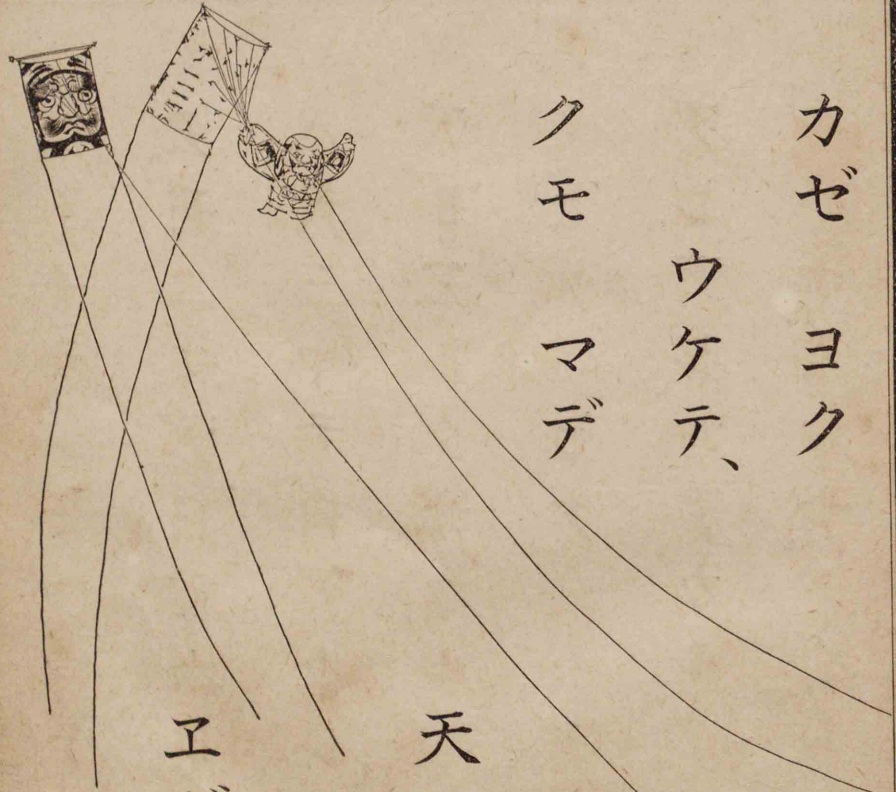 カゼ ヨク
ウケテ、
クモ マデ
天
ヱ